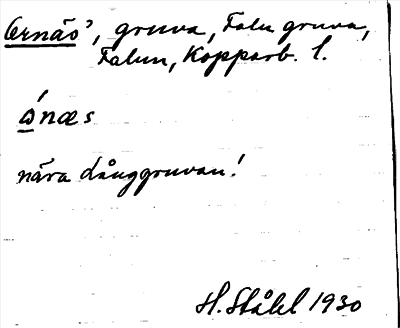 Arnäs, gruva, Falu gruva,
Falun, Kopparb. l.
ánæs
nära Långgruvan!
H. Ståhl 1930